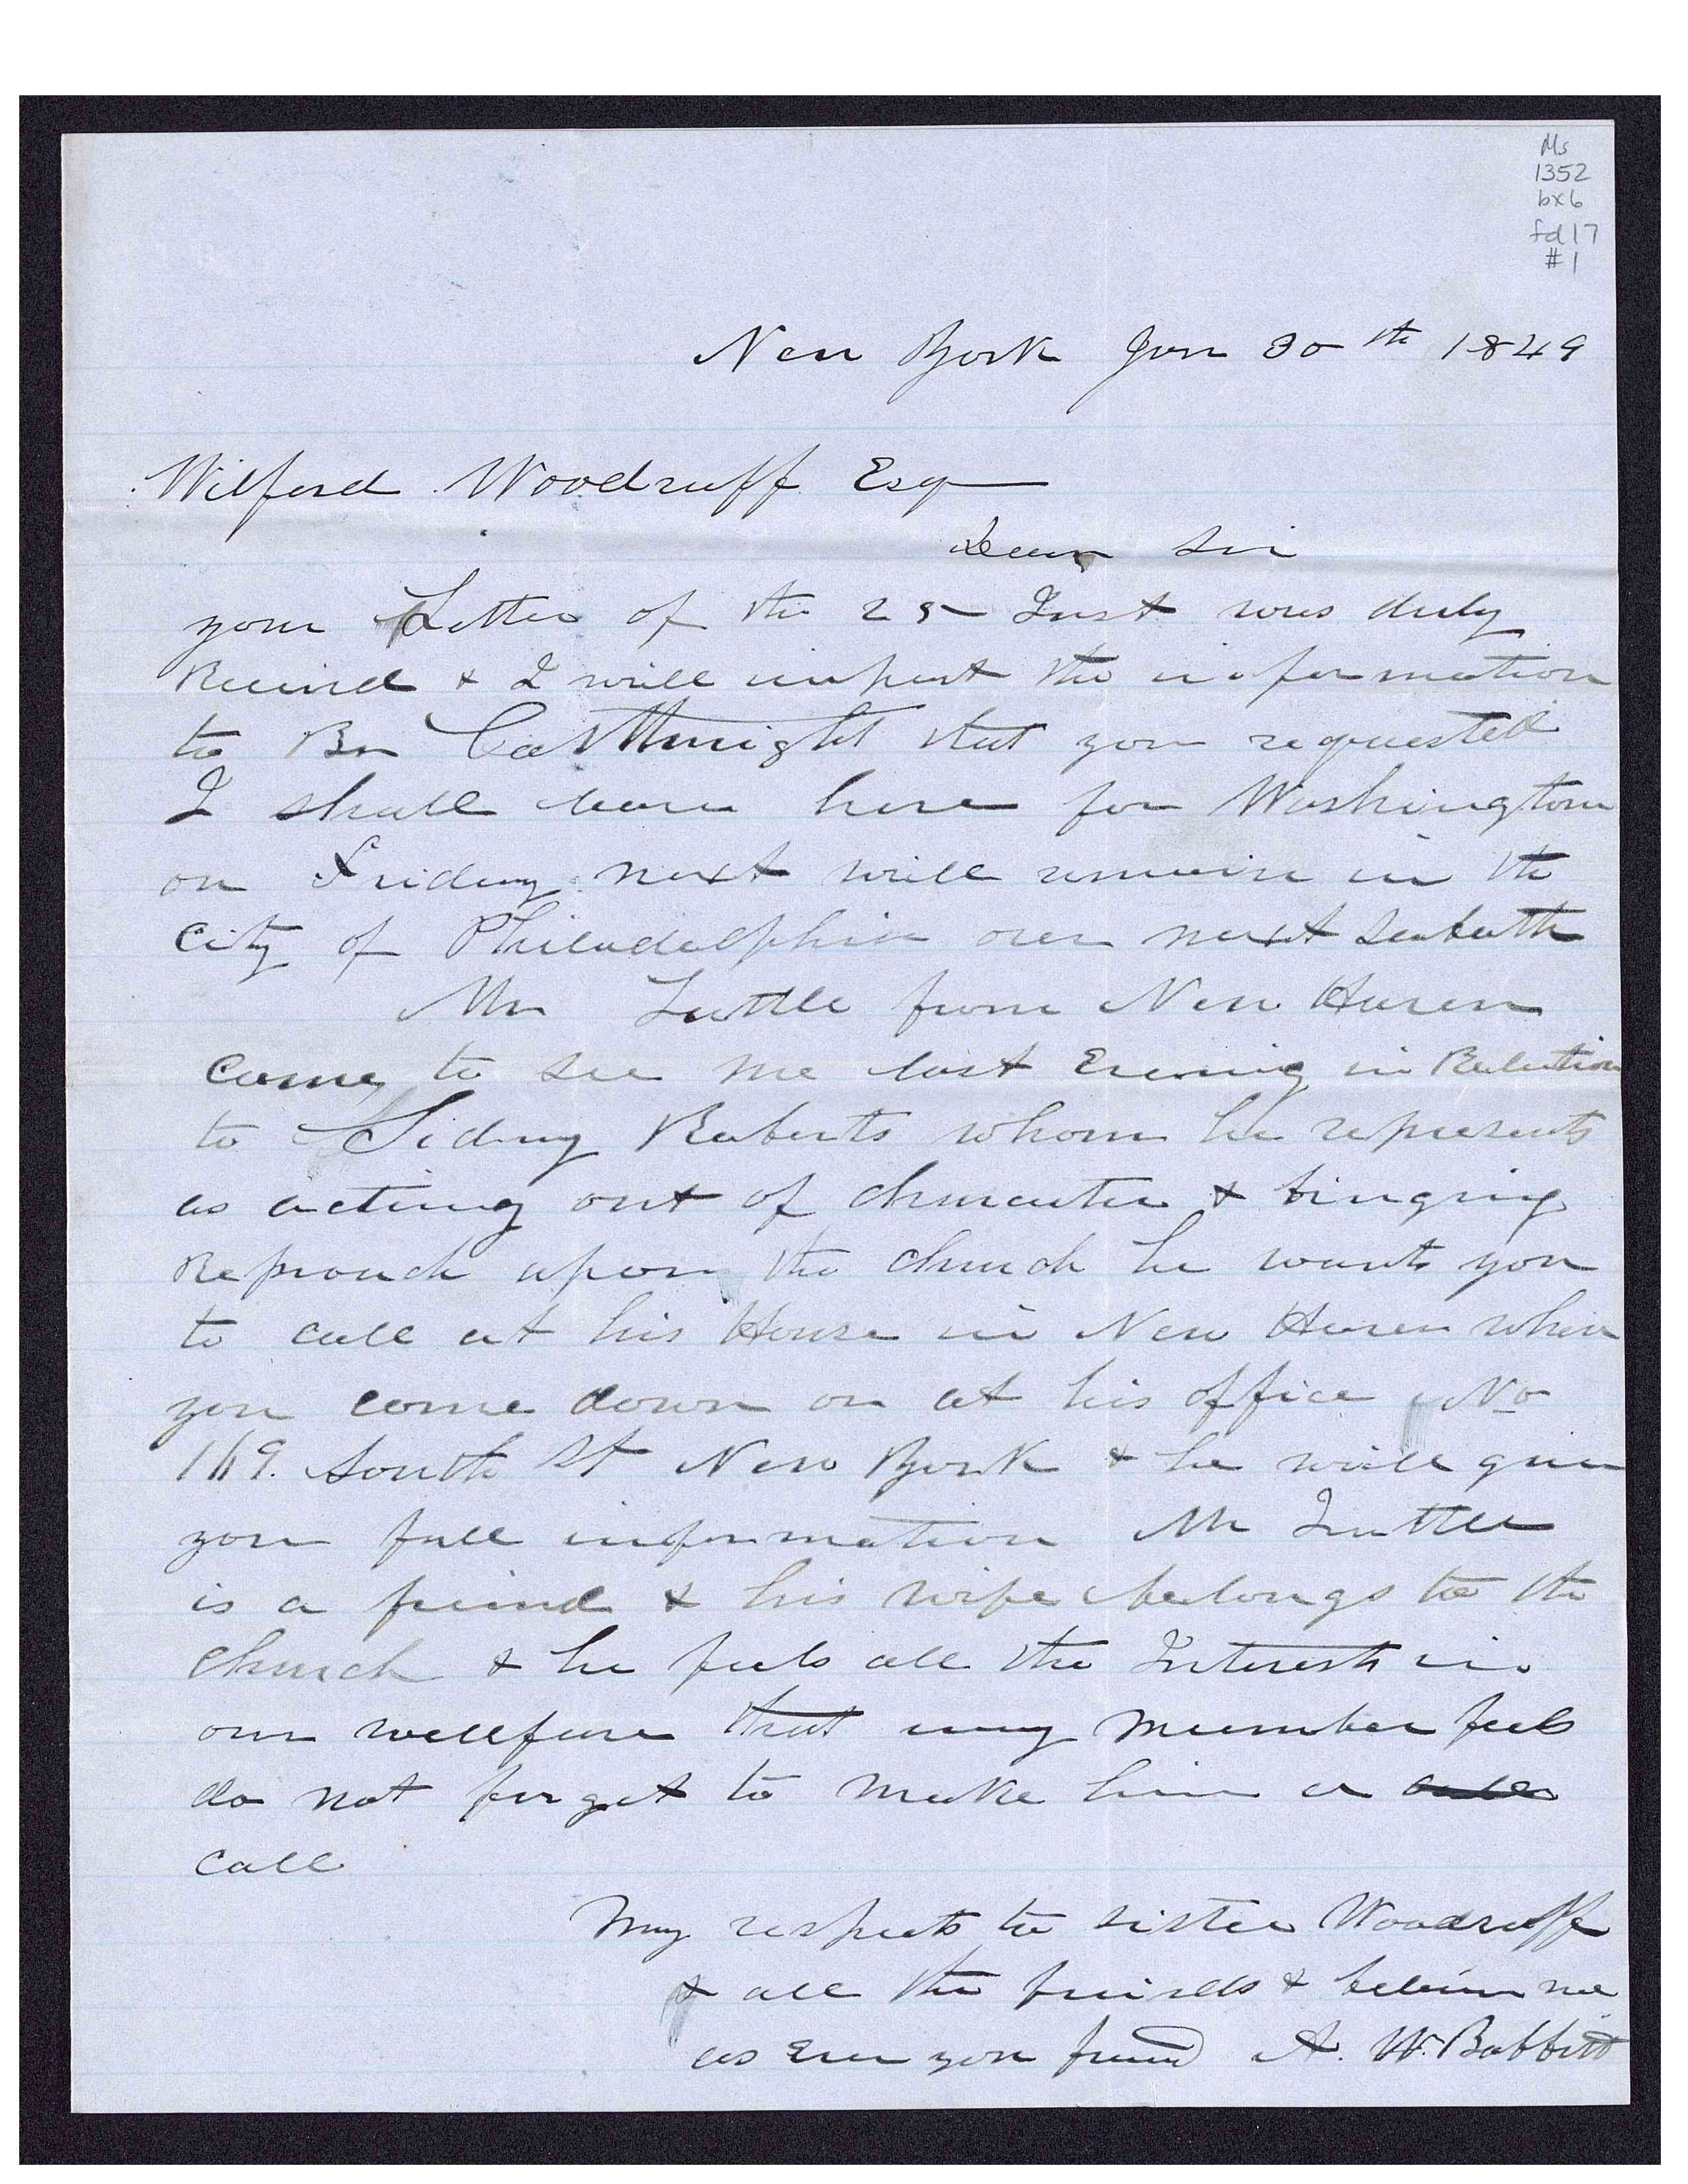 Ms
1352
bx 6
fd 17
#1
New York Jan 30th 1849
Wilford Woodruff Esq
Dear Sir
your Letter of the 25 Inst was duly
Received & I will impart the information
to Br that you requested
I shall leave here for Washington
on Friday next will remain in the
City of Philadelphia over next Sabath
Mr Tuttle from New Haven
came to see me last Evening in Relation
to Sidney Roberts whom he represents
as acting out of character & bringing
Reproach upon the church he wants you
to call at his House in New Haven when
you come down or at his office No
119. South St New York & he will give
you full information Mr Tuttle
is a friend & his wife belongs to the
Church & he feels all the Interest in
our wellfare that any member feels
do not forget to make him a
call
My respects to sister Woodruff
& all the friends & believe me
as Ever your friend A. W. Babbitt